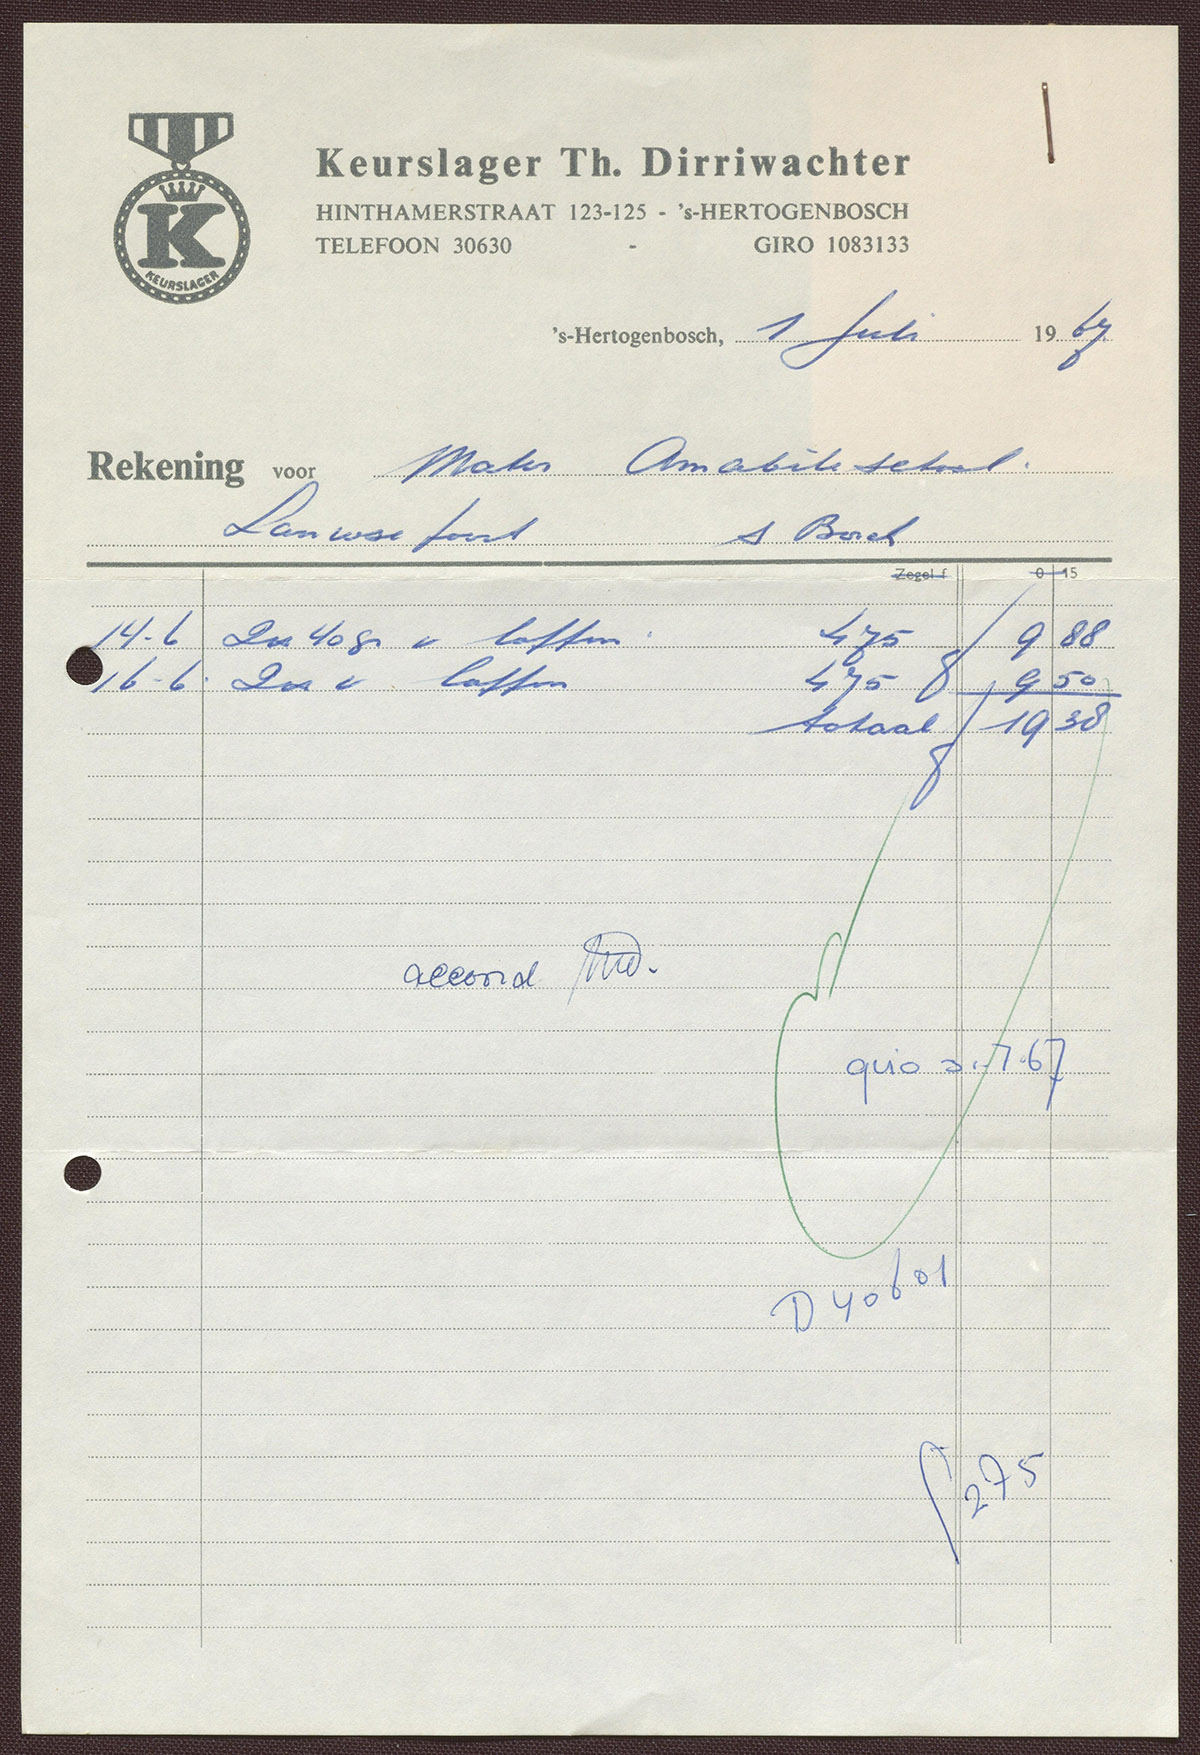 K
KEURSLAGER
Keurslager Th. Dirriwachter
HINTHAMERSTRAAT 123-125 - 's-HERTOGENBOSCH
TELEFOON 30630 - GIRO 1083133
's-Hertogenbosch, 1 Juli 1967
Rekening voor Mater Amabileschool.
s Bosch
Zegel f 0 15
14-6 40 gr v 475 9 88
16-6. v 475 9 50
totaal f 19 38
accord
giro 3.7.67
D 40601
275